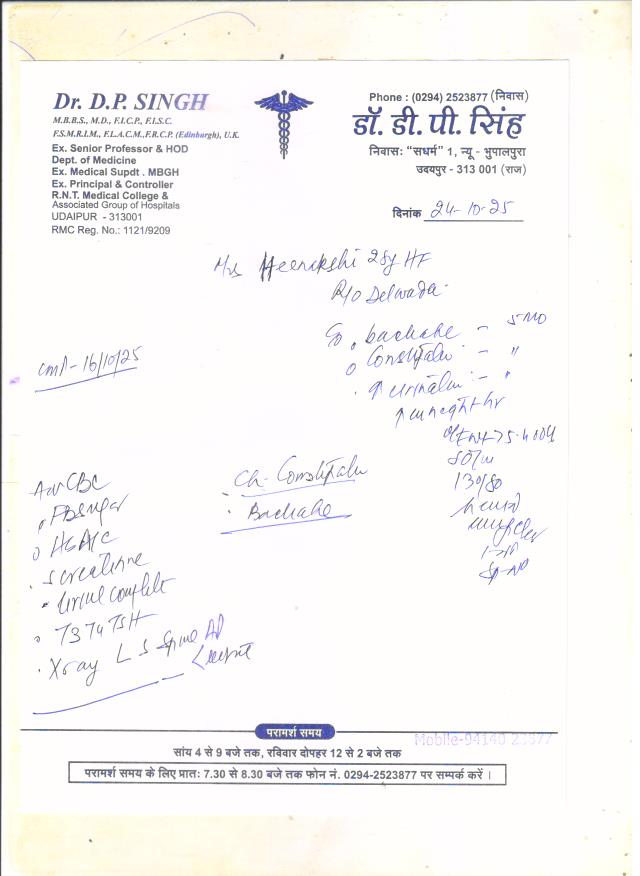 Dr. D.P. SINGH
M.B.B.S., M.D., F.I.C.P., F.I.S.C.
F.S.M.R.I.M., F.L.A.C.M.,F.R.C.P. (Edinburgh), U.K.
Ex. Senior Professor & HOD
Dept. of Medicine
Ex. Medical Supdt . MBGH
Ex. Principal & Controller
R.N.T. Medical College &
Associated Group of Hospitals
UDAIPUR - 313001
RMC Reg. No.: 1121/9209
Phone : (0294) 2523877 (निवास)
डॉ. डी. पी. सिंह
निवासः "सधर्म" 1, न्यू - भुपालपुरा
उदयपुर - 313 001 (राज)
दिनांक 24-10-25
Mrs Meenakshi 28y HF
R/o Delwada
backahe - 5 MO
Constipatn - "
↑ urinatn - "
- 16/10/25
80/m
130/80
Ch. Constipatn
Backahe
Adv CBC
FBsugar
HbA1C
S creatinine
Urine complete
T3 T4 TSH
Xray L S Spine AP
परामर्श समय
Mobile-94140 23877
सांय 4 से 9 बजे तक, रविवार दोपहर 12 से 2 बजे तक
परामर्श समय के लिए प्रातः 7.30 से 8.30 बजे तक फोन नं. 0294-2523877 पर सम्पर्क करें ।